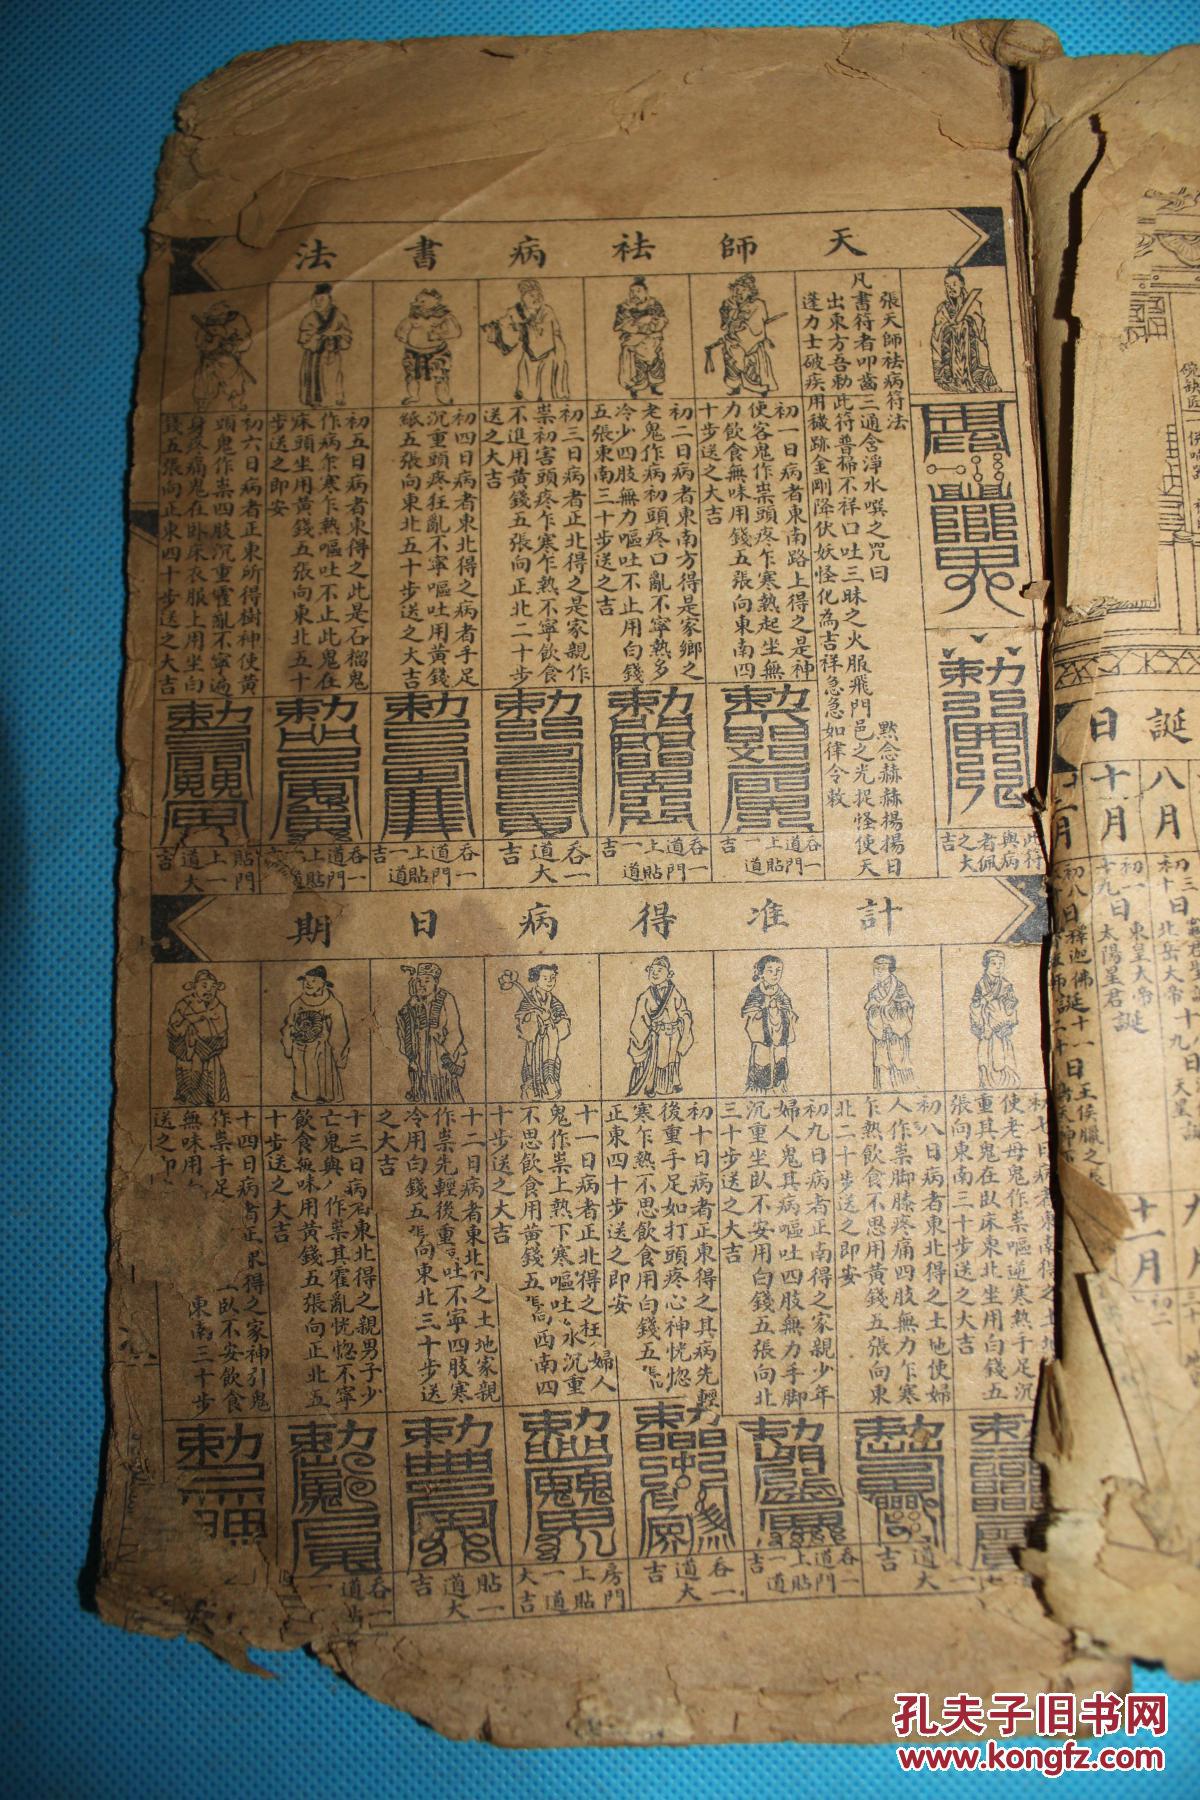 天師祛病書法
張天師祛病符法
凡書符者叩齒三通含淨水噀之咒曰
默念赫赫揚揚日
出東方吾勅此符普掃不祥口吐三昧之火服飛門邑之光捉怪使天
蓬力士破疾用穢跡金剛降伏妖怪化為吉祥急急如律令敕
此符
與病
者佩
之大
吉
初一日病者東南路上得之是神
使客鬼作祟頭疼乍寒熱起坐無
力飲食無味用錢五張向東南四
十步送之大吉
吞一
道門
上貼
一道
吉
初二日病者東南方得是家鄉之
老鬼作病初頭疼口亂不寧熱多
冷少四肢無力嘔吐不止用白錢
五張東南三十步送之吉
吞一
道門
上貼
一道
吉
初三日病者正北得之是家親作
祟初害頭疼乍寒乍熱不寧飲食
不進用黃錢五張向正北二十步
送之大吉
吞一
道大
吉
初四日病者東北得之病者手足
沉重頭疼狂亂不寧嘔吐用黃錢
紙五張向東北五十步送之大吉
吞一
道門
上貼
一道
初五日病者東得之此是石榴鬼
作病乍寒乍熱嘔吐不止此鬼在
床頭坐用黃錢五張向東北五十
步送之即安
吞一
道門
上貼
初六日病者正東所得樹神使黃
頭鬼作祟四肢沉重霍亂不寧遍
身疼痛鬼在卧床衣服上用坐白
錢五張向正東四十步送之大吉
貼門
上一
道大
吉
計准得病日期
初七日病者東南得之土地
使老母鬼作祟嘔逆寒熱手足沉
重其鬼在臥床東北坐用白錢五
張向東南三十步送之大吉
初八日病者東北得之土地使婦
人作祟脚膝疼痛四肢無力乍寒
乍熱飲食不思用黃錢五張向東
北二十步送之即安
道大
吉
初九日病者正南得之家親少年
婦人鬼其病嘔吐四肢無力手脚
沉重坐臥不安用白錢五張向北
三十步送之大吉
吞一
道門
上貼
一道
吉
初十日病者正東得之其病先輕
後重手足如打頭疼心神恍惚
寒乍熱不思飲食用白錢五張
正東四十步送之即安
吞一
道大
吉
十一日病者正北得之枉婦人
鬼作祟上熱下寒嘔吐水沉重
不思飲食用黃錢五張向西南四
十步送之大吉
房門
上貼
一道
大吉
十二日病者東北之土地家親
作祟先輕後重吐不寧四肢寒
冷用白錢五張向東北三十步送
之大吉
貼一
道大
吉
十三日病者東北得之親男子少
亡鬼與作祟其霍亂恍惚不寧
飲食無味用黃錢五張向正北五
十步送之大吉
吞一
道貼
一
十四日病者正東得之家神引鬼
作祟手足臥不安飲食
無味用東南三十步
送之即
誕日
八月
初三日
初十日北岳大帝
十九日天皇誕
十月
初一日東皇大帝
十九日太陽星君誕
初八日釋迦佛誕
十一日王侯臘之
十一月
孔夫子旧书网
www.kongfz.com